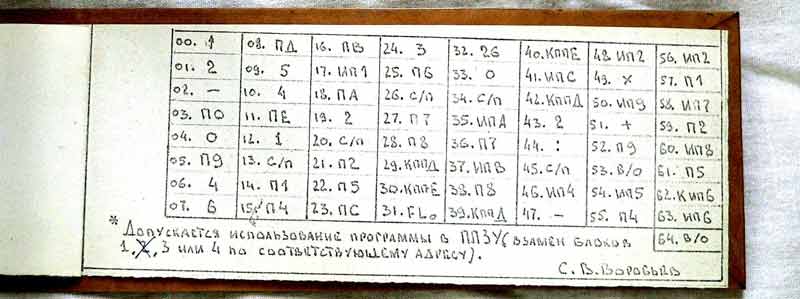 00. 1 08. ПД 16. ПВ 24. 3 32. 26 40. КППЕ 48. ИП2 56. ИП2
01. 2 09. 5 17. ИП1 25. П6 33. 0 41. ИПС 49. × 57. П1
02. – 10. 4 18. ПА 26. С/П 34. С/П 42. КППД 50. ИП9 58. ИП7
03. ПО 11. ПЕ 19. 2 27. П7 35. ИПА 43. 2 51. + 59. П2
04. 0 12. 1 20. С/П 28. П8 36. П7 44. : 52. П9 60. ИП8
05. П9 13. С/П 21. П2 29. КППД 37. ИПВ 45. С/П 53. В/О 61. П5
06. 4 14. П1 22. П5 30. КППЕ 38. П8 46. ИП4 54. ИП5 62. КИП6
07. 6 15. П4 23. ПС 31. FLo 39. КППД 47. – 55. П4 63. ИП6
64. В/О
* Допускается использование программы в ППЗУ (взамен блоков
1, 2, 3 или 4 по соответствующему адресу).
С. В. Воробьев